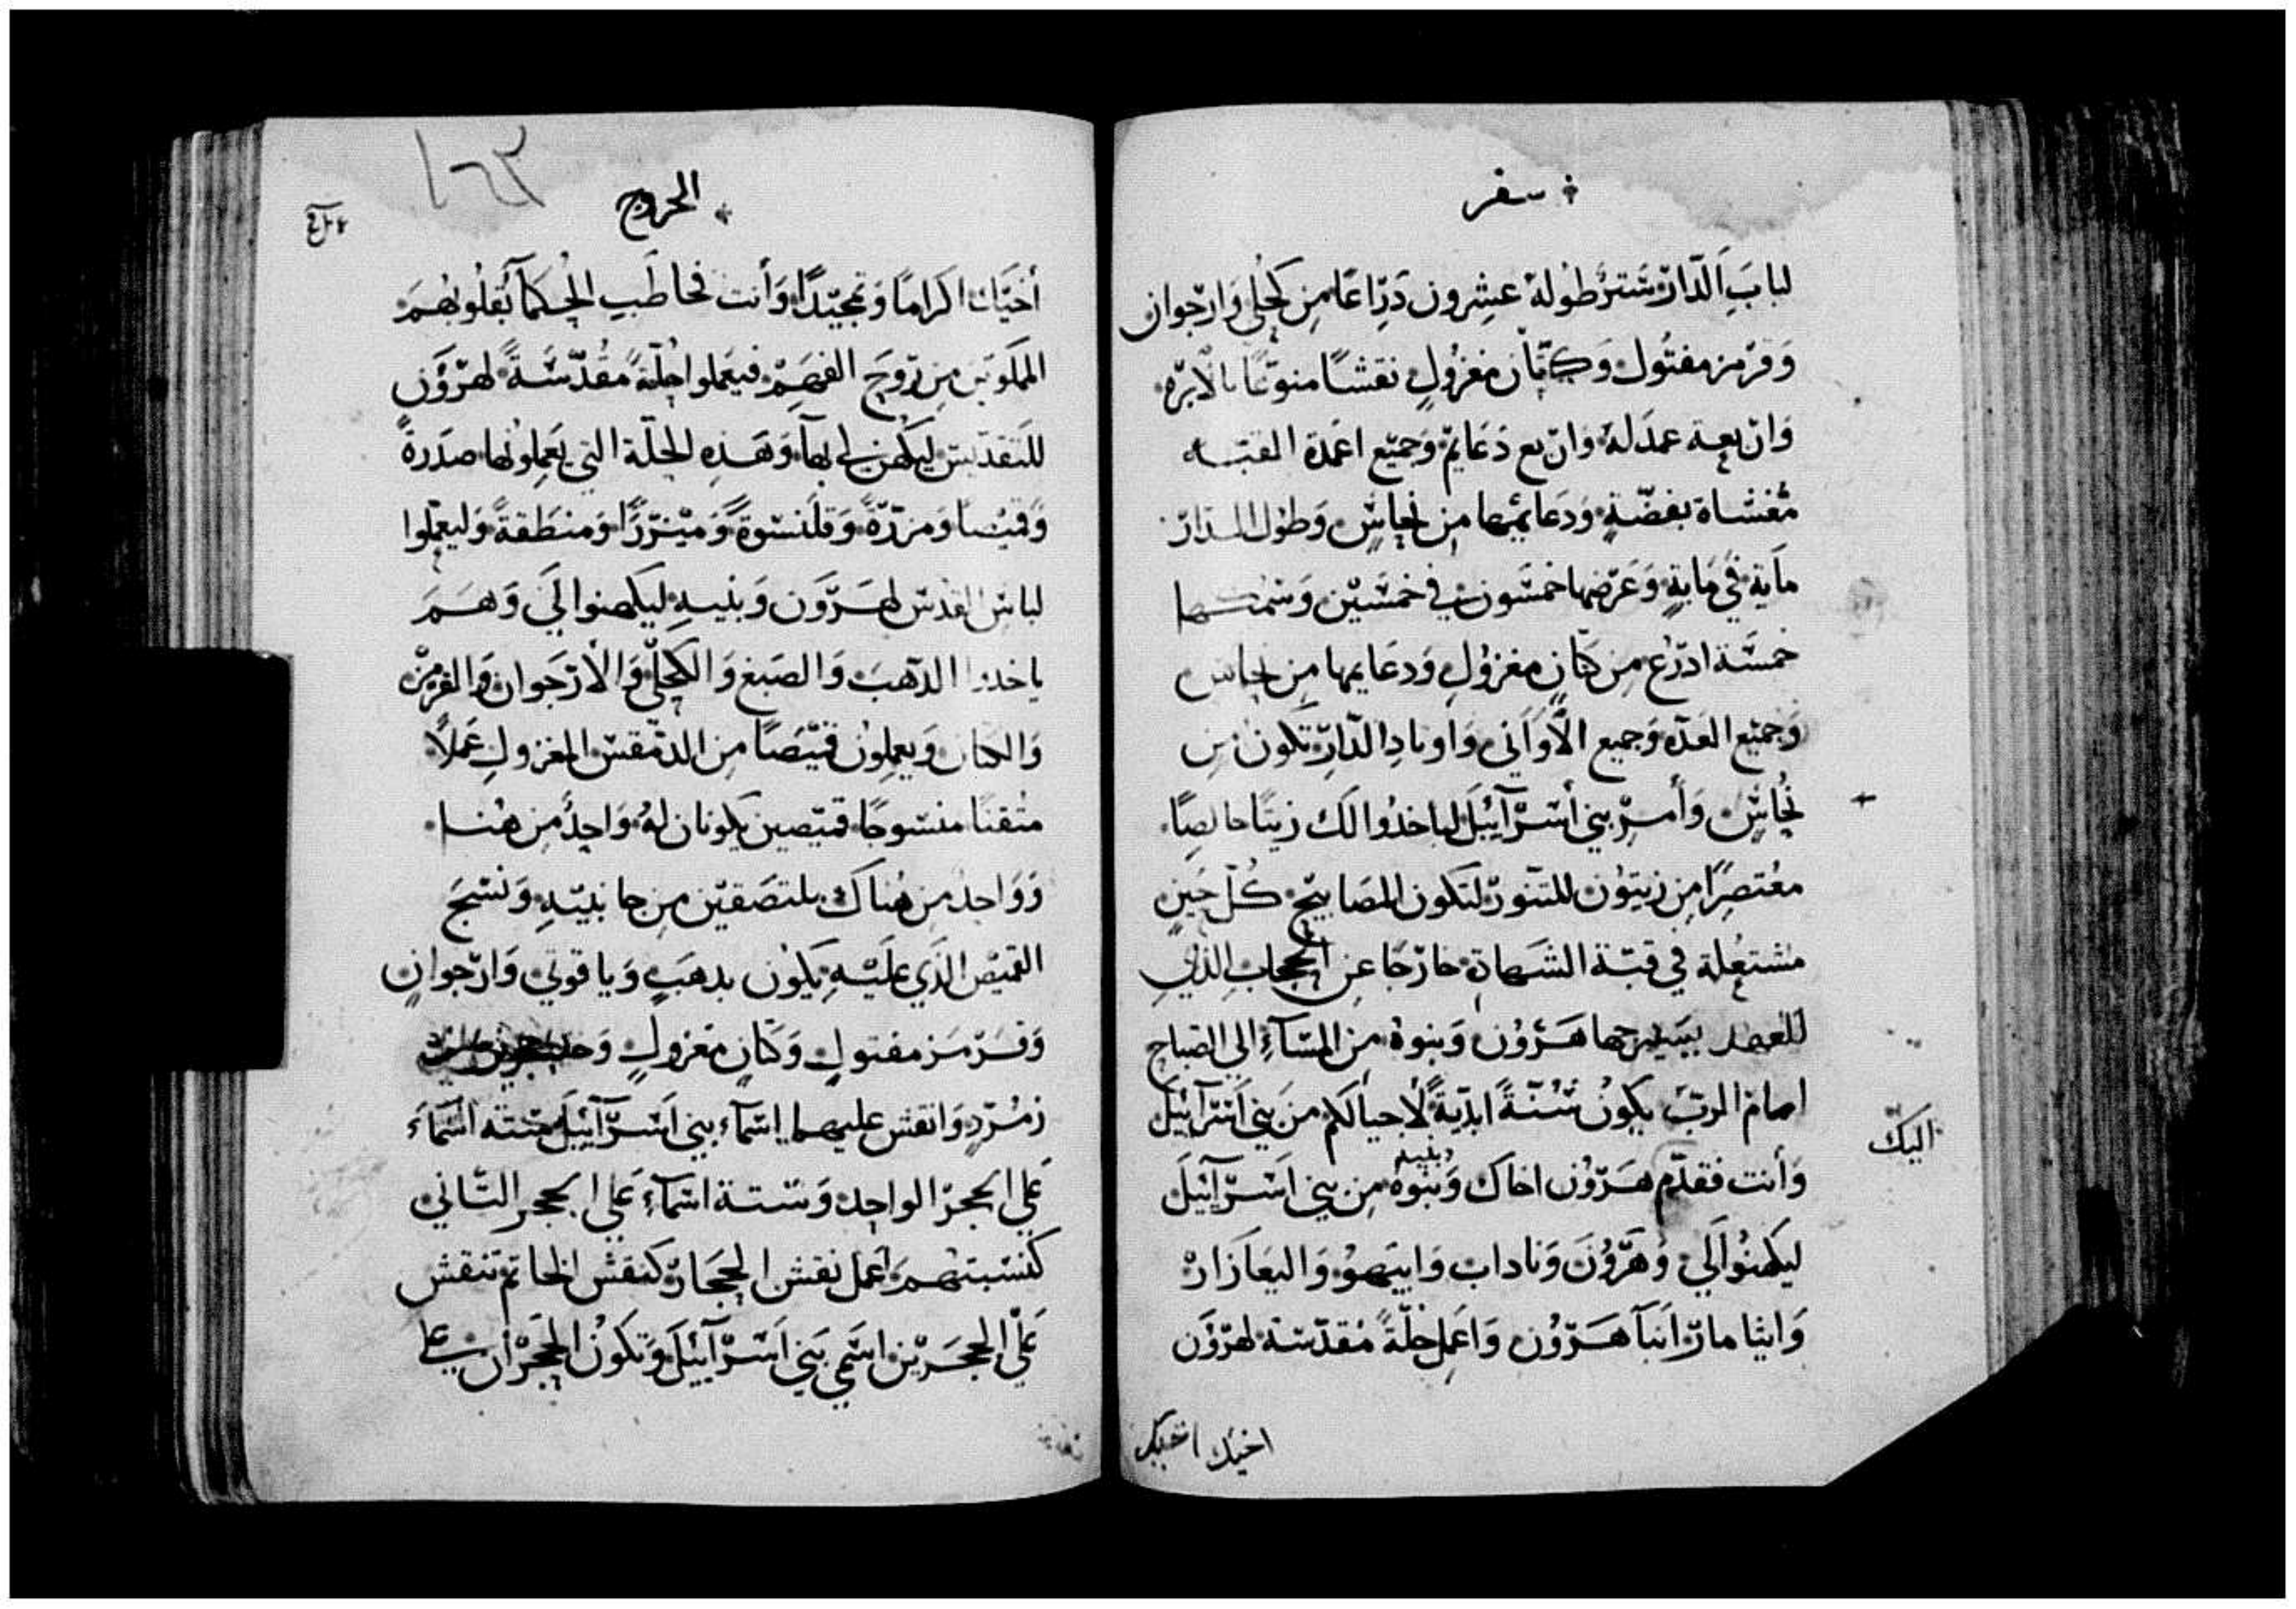 سفر
لباب الدار ستر طوله عشرون ذراعًا من كحلي وارجوان
وقرمز مفتول وكتان مغزول نقشًا منوعًا بالابره
واربعة عمد له واربع دعايم وجميع اعمدة القبه
مغشاة بفضة ودعايمها من نحاس وطول الدار
ماية في ماية وعرضها خمسون في خمسين وسمكها
خمسة ادرع من كتان مغزول ودعايمها من نحاس
وجميع العده وجميع الأواني واوتاد الدار تكون من
نحاس وأمر بني أسرآئيل لياخدوا لك زيتًا خالصًا
معتصرًا من زيتون للتنور لتكون المصابيح كل حين
مشتعلة في قبة الشهادة خارجا عن الحجاب الذي
للعهد يسرجها هرون وبنوه من المسآء الي الصباح
امام الرب يكون سنة ابدية لأجيالكم من بني اسرآئيل
اليك
وأنت فقدم هرون اخاك وبنوه من بني اسرآئيل
وبنيه
ليكهنوا لي وهرون وناداب وابيهو واليعازار
وايثامار ابنآ هرون واعمل حلة مقدسة لهرون
اخيك اخيك
الخروج
١٦٣
أخيك اكرامًا وتمجيدًا وأنت فخاطب الحكمآ بقلوبهم
المملوين من روح الفهم فيعملوا حلة مقدسة لهرون
للتقديس ليكهن لي بها وهذه الحلة التي يعملونها صدرة
وقميصا ومزررة وقلنسوة وميزرًا ومنطقة وليعملوا
لباس القدس لهرون وبنيه ليكهنوا لي وهم
ياخدوا الدهب والصبغ والكحلي والأرجوان والقرمز
والكتان ويعملون قميصًا من الدمقس المغزول عملًا
متقنًا منسوجًا قميصين يكونان له واحد من هنا
وواحد من هناك ملتصقين من جانبيه ونسج
القميص الذي عليه يكون بدهب وياقوتي وارجوان
وقرمز مفتول وكتان مغزول وخد حجرين
زمرد وانقش عليهما اسمآء بني اسرآئيل ستة اسمآء
علي الحجر الواحد وستة اسمآء علي الحجر التاني
كنسبتهم اعمل نقش الحجار كنقش الخاتم تنقش
علي الحجرين اسمي بني اسرآئيل وتكون الحجران علي